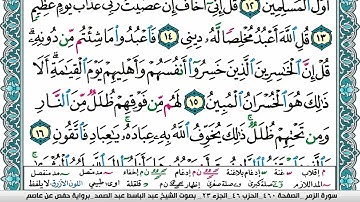 أَوَّلَ ٱلْمُسْلِمِينَ ١٢ قُلْ إِنِّيٓ أَخَافُ إِنْ عَصَيْتُ رَبِّي عَذَابَ يَوْمٍ عَظِيمٍ
١٣ قُلِ ٱللَّهَ أَعْبُدُ مُخْلِصًا لَّهُۥ دِينِي ١٤ فَٱعْبُدُوا۟ مَا شِئْتُم مِّن دُونِهِۦ
قُلْ إِنَّ ٱلْخَٰسِرِينَ ٱلَّذِينَ خَسِرُوٓا۟ أَنفُسَهُمْ وَأَهْلِيهِمْ يَوْمَ ٱلْقِيَٰمَةِ أَلَا
ذَٰلِكَ هُوَ ٱلْخُسْرَانُ ٱلْمُبِينُ ١٥ لَهُم مِّن فَوْقِهِمْ ظُلَلٌ مِّنَ ٱلنَّارِ
وَمِن تَحْتِهِمْ ظُلَلٌ ذَٰلِكَ يُخَوِّفُ ٱللَّهُ بِهِۦ عِبَادَهُۥ يَٰعِبَادِ فَٱتَّقُونِ ١٦
سورة الزمر الصفحة ٤٦٠ الحزب ٤٦ الجزء ٢٣ بصوت الشيخ عبد الباسط عبد الصمد برواية حفص عن عاصم